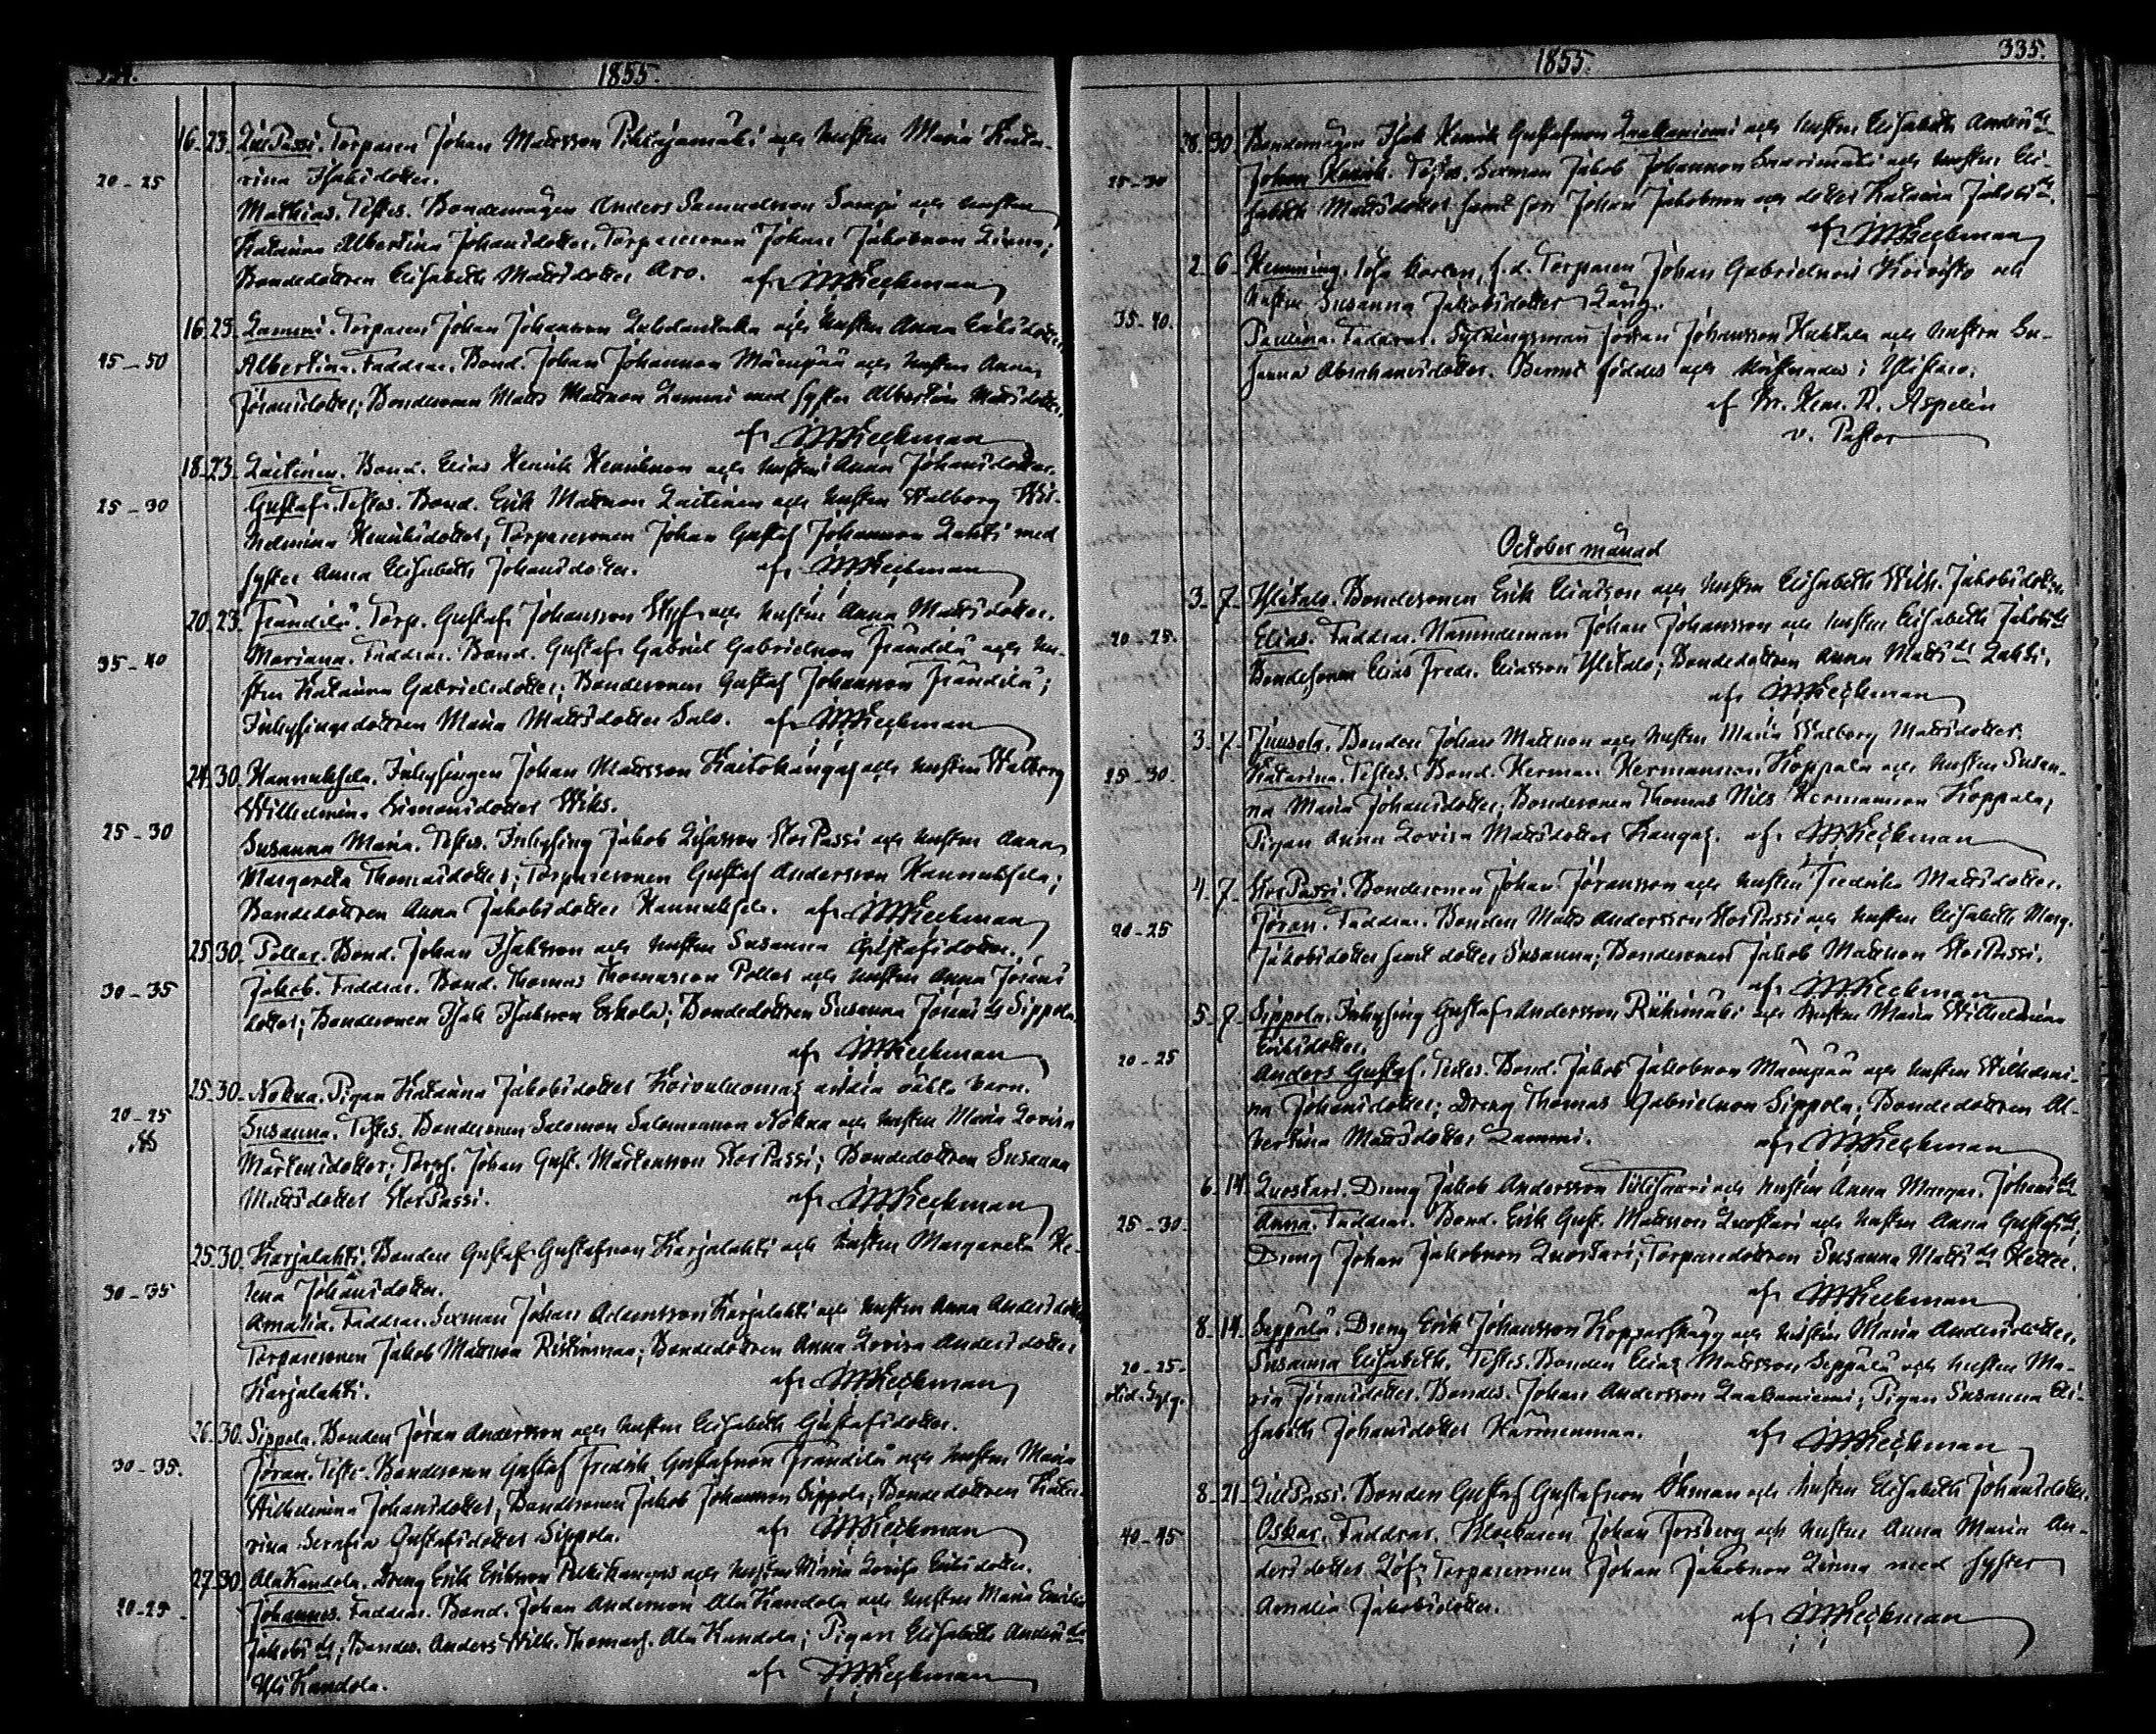 334.
1855.
16. 23. LillPassi. Torparen Johan Mattsson Pihlajamäki och hustru Maria Kata-
20-25 rina Isaksdotter.
Mathias. Testes. Bondemågen Anders Samuelsson Sarajä och hustru
Katarina Albertina Johansdotter, Torparesonen Johan Jakobsson Linna;
Bondedottren Elisabeth Mattsdotter Aro. af WKeckman
16. 23. Lammi. Torparen Johan Johansson Lahdentaka och hustru Anna Eriksdotter
45-50 Albertina. Faddrar. Bond. Johan Johansson Mäenpää och hustru Anna
Jöransdotter; Bondesonen Matts Mattsson Lammi med syster Albertina Mattsdotter
af WKeckman
18. 23. Laitinen. Bond. Elias Henrik Henriksson och hustru Anna Johansdotter.
25-30 Gustaf. Testes. Bond. Erik Mattsson Laitinen och hustru Walborg Wil-
helmina Henriksdotter; Torparesonen Johan Gustaf Johansson Lahti med
syster Anna Elisabeth Johansdotter. af WKeckman
20. 23. Frändilä. Torp. Gustaf Johansson Styf och hustru Anna Mattsdotter.
35-40 Mariana. Faddrar. Bond. Gustaf Gabriel Gabrielsson Frändilä och hu-
stru Katarina Gabrielsdotter; Bondesonen Gustaf Johansson Frändilä;
Inhysingsdottren Maria Mattsdotter Salo. af WKeckman
24. 30. Hannuksela. Inhysingen Johan Mattsson Kaitokangas och hustru Walborg
Wilhelmina Simonsdotter Wiks.
25-30 Susanna Maria. Testes. Inhysing Jakob Lisasson StorPassi och hustru Anna
Margareta Thomasdotter; Torparesonen Gustaf Andersson Hannuksela;
Bondedottren Anna Jakobsdotter Hannuksela. af WKeckman
25. 30. Pollar. Bond. Johan Isaksson och hustru Susanna Gustafsdotter.
30-35 Jakob. Faddrar. Bond. Thomas Thomasson Pollar och hustru Anna Jörans
dotter; Bondesonen Isak Isaksson Eskola; Bondedottren Susanna Jörans dr Sippola.
af WKeckman
25. 30. Nokua. Pigan Katarina Jakobsdotter Koivuluomas andra oäkta barn.
20-25 Susanna. Testes. Bondesonen Salomon Salomonsson Nokua och hustru Maria Lovisa
Mårtensdotter; Torps. Johan Gust. Mårtensson StorPassi; Bondedottren Susanna
Mattsdotter StorPassi. af WKeckman
25. 30. Karjalahti. Bonden Gustaf Gustafsson Karjalahti och hustru Margareta He-
30-35 lena Johansdotter.
Amalia. Faddrar. Sexman Johan Adamsson Karjalahti och hustru Anna Andersdotter
Torparesonen Jakob Mattsson Ristinmaa; Bondedottren Anna Lovisa Andersdotter
Karjalahti. af WKeckman
26. 30. Sippola. Bonden Jöran Andersson och hustru Elisabeth Gustafsdotter.
30-35. Jöran. Testes. Bondesonen Gustaf Fredrik Gustafsson Frändilä och hustru Maria
Wilhelmina Johansdotter; Bondesonen Jakob Johansson Sippola; Bondedottren Kata-
rina Serafia Gustafsdotter Sippola. af WKeckman
27. 30. AlaKandola. Dreng Erik Eriksson Pelkikangas och hustru Maria Lovisa Eriksdotter.
20-25 Johannes. Faddrar. Bond. Johan Andersson AlaKandola och hustru Maria Emilia
Jakobs dr; Bondes. Anders Wilh. Thomass. AlaKandola; Pigan Elisabeth Anders dr
YliKandola. af WKeckman
1855.
335.
28. 30. Bondemågen Isak Henrik Gustafsson Laakaniemi och hustru Elisabeth Anders dr
25-30 Johan Henrik. Testes. Sexman Jakob Johansson Saarimäki och hustru Eli-
sabeth Mattsdotter samt son Johan Jakobsson och dotter Katarina Jakobs dr.
af WKeckman
2. 6. Hemming. Torparen Johan Gabrielsson Koivisto och
hustru Susanna Jakobsdotter Lång.
35-40. Paulina. Faddrar. Sytningsman Johan Johansson Huhtala och hustru Su-
sanna Abrahamsdotter. Barnet föddes och kristnades i Ylistaro.
af Br. Hem. R. Aspelin
v. Pastor
October månad
3. 7. Ylitalo. Bondesonen Erik Eliasson och hustru Elisabeth Wilh. Jakobsdotter
20-25. Elias. Faddrar. Nämndeman Johan Johansson och hustru Elisabeth Jakobs dr
Bondesonen Elias Fredr. Eliasson Ylitalo; Bondedottren Anna Matts dr Lahti.
af WKeckman
3. 7. Juusola. Bonden Johan Mattsson och hustru Maria Walborg Mattsdotter.
25-30. Katarina. Testes. Bond. Herman Hermansson Koppala och hustru Susan-
na Maria Johansdotter; Bondesonen Thomas Nils Hermansson Koppala;
Pigan Anna Lovisa Mattsdotter Kangas. af WKeckman
4. 7. StorPassi. Bondesonen Johan Jöransson och hustru Fredrika Mattsdotter.
20-25 Jöran. Faddrar. Bonden Matts Andersson StorPassi och hustru Elisabeth Marg.
Jakobsdotter samt dotter Susanna; Bondesonen Jakob Mattsson StorPassi.
af WKeckman
5. 7. Sippola. Inhysing Gustaf Andersson Riihimäki och hustru Maria Wilhelmina
20-25 Eriksdotter.
Anders Gustaf. Testes. Bond. Jakob Jakobsson Mäenpää och hustru Wilhelmi-
na Johansdotter; Dreng Thomas Gabrielsson Sippola; Bondedottren Al-
bertina Mattsdotter Lammi. af WKeckman
6. 14. Luostari. Dreng Jakob Andersson Tylisaari och hustru Anna Margar. Johans dr
25-30. Anna. Faddrar. Bond. Erik Gust. Mattsson Luostari och hustru Anna Gustafs dr;
Dreng Johan Jakobsson Luostari; Torparedottren Susanna Matts dr
af WKeckman
8. 14. Seppälä. Dreng Erik Johansson Kopparskägg och hustru Maria Andersdotter.
20-25. Susanna Elisabeth. Testes. Bonden Elias Mattsson Seppälä och hustru Ma-
ria Jöransdotter. Bondes. Johan Andersson Laakaniemi; Pigan Susanna Eli-
sabeth Johansdotter Härmenmaa. af WKeckman
8. 21. LillPassi. Bonden Gustaf Gustafsson Öhman och hustru Elisabeth Johansdotter.
40-45 Oskar. Faddrar. Klockaren Johan Forsberg och hustru Anna Maria An-
dersdotter Löf; Torparesonen Johan Jakobsson Linna med syster
Amalia Jakobsdotter. af WKeckman